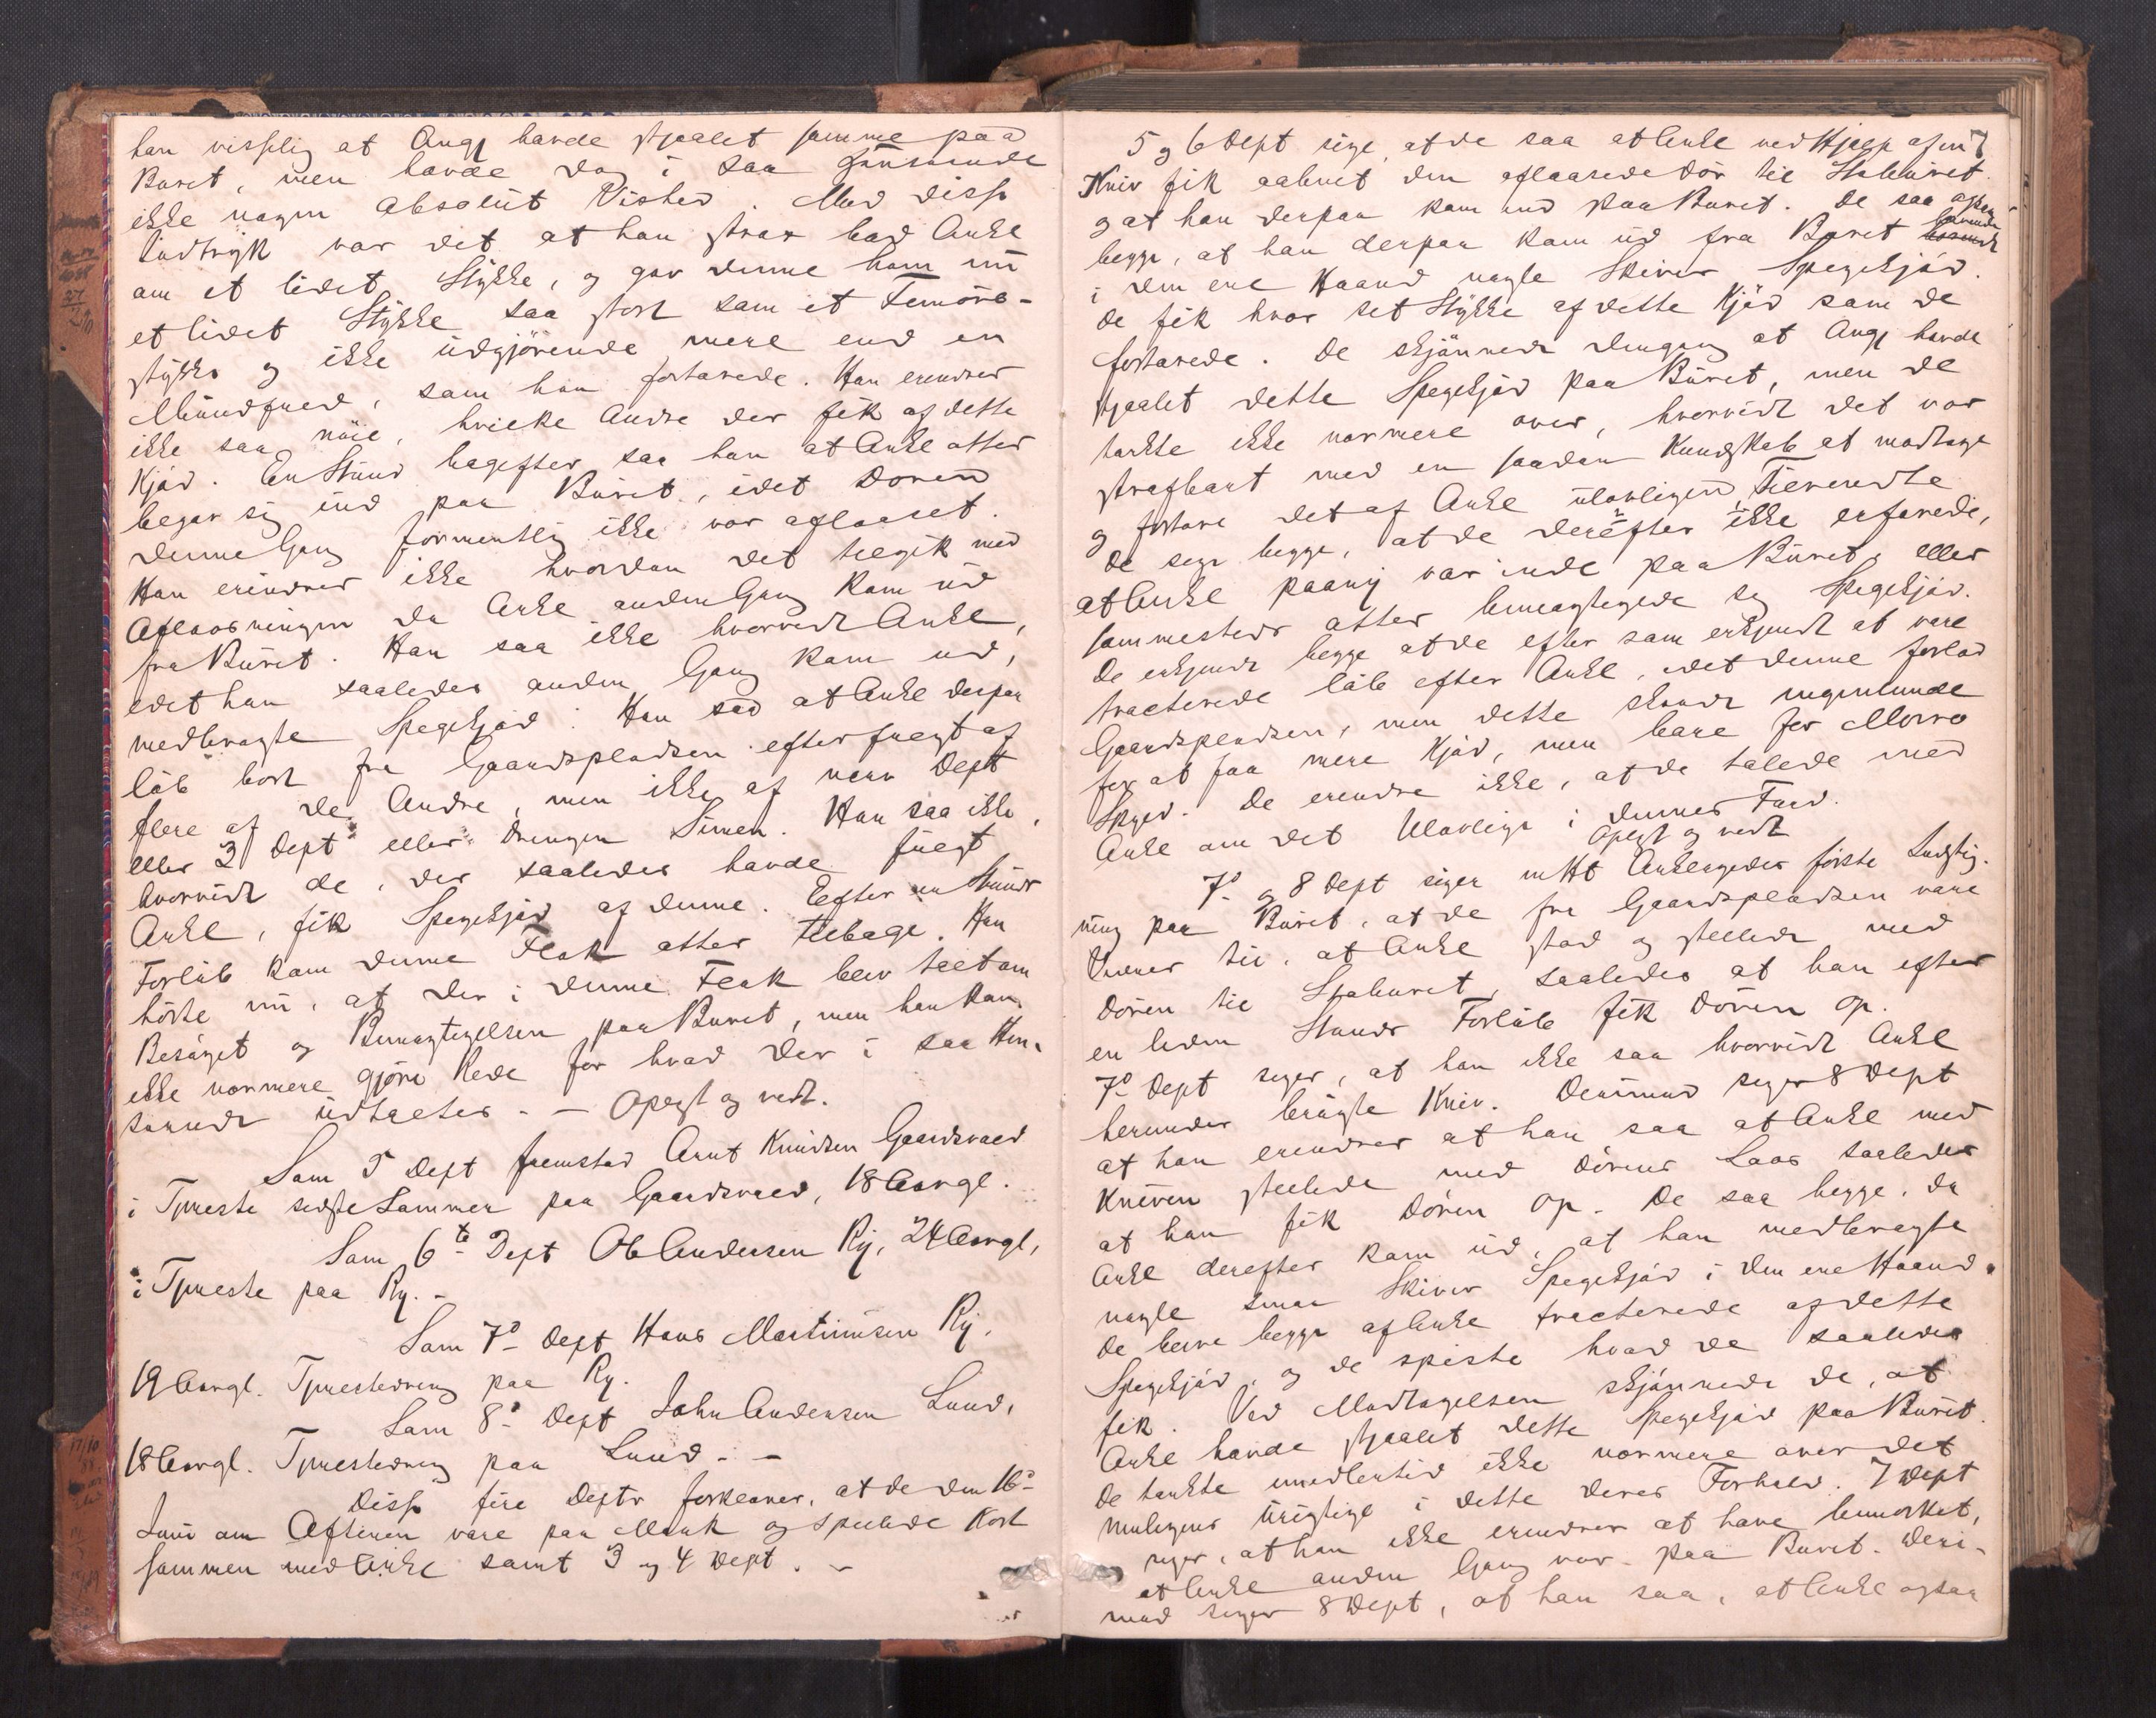 han visselig at Ang havde stjaalet samme paa
Buret, men havde dog i saa Henseende
ikke nogen absolut Vished. Med disse
Indtryk var det at han strax bad Anke
om et lidet Stykke, og gav denne ham nu
et lidet Stykke saa stort som et Femøre-
stykke og ikke udgjørende mere end en
Mundfuld, som han fortærede. Han erindrer
ikke saa nøie, hvilke Andre der fik af dette
Kjød. En Stund bagefter saa han at Anke atter
begav sig ind paa Buret, idet Døren
denne Gang formentlig ikke var aflaaset.
Han erindrer ikke hvordan det tilgik med
Aflaasningen da Anke anden Gang kom ud
fra Buret. Han saa ikke hvorvidt Anke,
idet han saaledes anden Gang kom ud,
medbragte Spegekjød. Han saa at Anke derpaa
løb bort fra Gaardspladsen efterfulgt af
flere af de Andre, men ikke af nærv Dept
eller 3 Dept eller Drengen Simen. Han saa ikke,
hvorvidt de, der saaledes havde fulgt
Anke, fik Spegekjød af denne. Efter en Stunds
Forløb kom denne Flok atter tilbage. Han
hørte nu, at der i denne Flok blev talt om
Besøget og Bemægtigelsen paa Buret, men han kan
ikke nærmere gjøre Rede for hvad der i saa Hen-
seende udtaltes. - Oplæst og vedt.
Som 5 Dept fremstod Arnt Knudsen Gaardsvold
i Tjeneste sidste Sommer paa Gaardsvold, 18 Aargl.
Som 6te Dept Ole Andersen Ry, 24 Aargl,
i Tjeneste paa Ry. -
Som 7de Dept Hans Martinusen Ry,
19 Aargl. Tjenestedreng paa Ry.
Som 8de Dept John Andersen Lund,
18 Aargl. Tjenestedreng paa Lund. -
Disse fire Deptr forklarer, at de den 16de
Juni om Aftenen vare paa Mærk og spillede Kort
sammen med Anke samt 3 og 4 Dept. -
5 og 6 Dept sige, at de saa at Anke ved Hjælp af en
Kniv fik aabnet den aflaasede Dør til Stabburet
og at han derpaa kom ind paa Buret. De saa
begge, at han derpaa kom ud fra Buret havende
i den ene Haand nogle Skiver Spegekjød.
De fik hver set Stykke af dette Kjød som de
fortærede. De skjønnede dengang at Ang havde
stjaalet dette Spegekjød paa Buret, men de
tænkte ikke nærmere over, hvorvidt det var
strafbart med en saadan Kundskab at modtage
og fortære det af Anke ulovligen Tilvendte
De sige begge, at de derefter ikke erfarede,
at Anke paany var inde paa Buret, eller
sammesteds atter bemægtigede sig Spegekjød.
De erkjende begge at de efter som erkjendt at være
tracterede løb efter Anke, idet denne forlod
Gaardspladsen, men dette skede ingenlunde
for at faa mere Kjød, men bare for Moro
Skyld. De erindre ikke, at de talede med
Anke om det Ulovlige i dennes Færd.
Oplæst og vedt
7de og 8 Dept siger mHt Ankergjedes første Indstig-
ning paa Buret, at de fra Gaardspladsen vare
Vidner til, at Anke stod og stellede med
Døren til Stabburet, saaledes at han efter
en liden Stunds Forløb fik Døren op.
7de Dept siger, at han ikke saa hvorvidt Anke
herunder brugte Kniv. Derimod siger 8 Dept
at han erindrer at han saa at Anke med
Kniven stellede med Dørens Laas saaledes
at han fik Døren op. De saa begge, da
Anke derefter kom ud, at han medbragte
nogle smaa Skiver Spegekjød i den ene Haand.
De bleve begge af Anke tracterede af dette
Spegekjød, og de spiste hvad de saaledes
fik. Ved Modtagelsen skjønnede de, at
Anke havde stjaalet dette Spegekjød paa Buret.
De tænkte imidlertid ikke nærmere over det
muligens Urigtige i dette deres Forhold. 7 Dept
siger, at han ikke erindrer at have bemærket,
at Anke anden Gang var paa Buret. Deri-
mod siger 8 Dept, at han saa, at Anke ogsaa